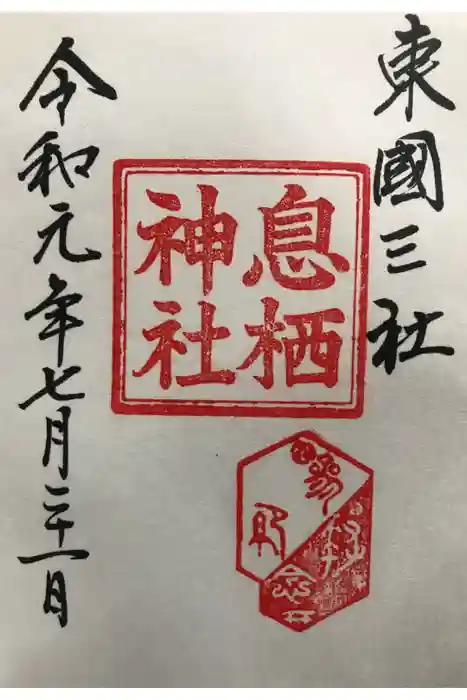 東國三社
息栖
神社
令和元年七月二十一日